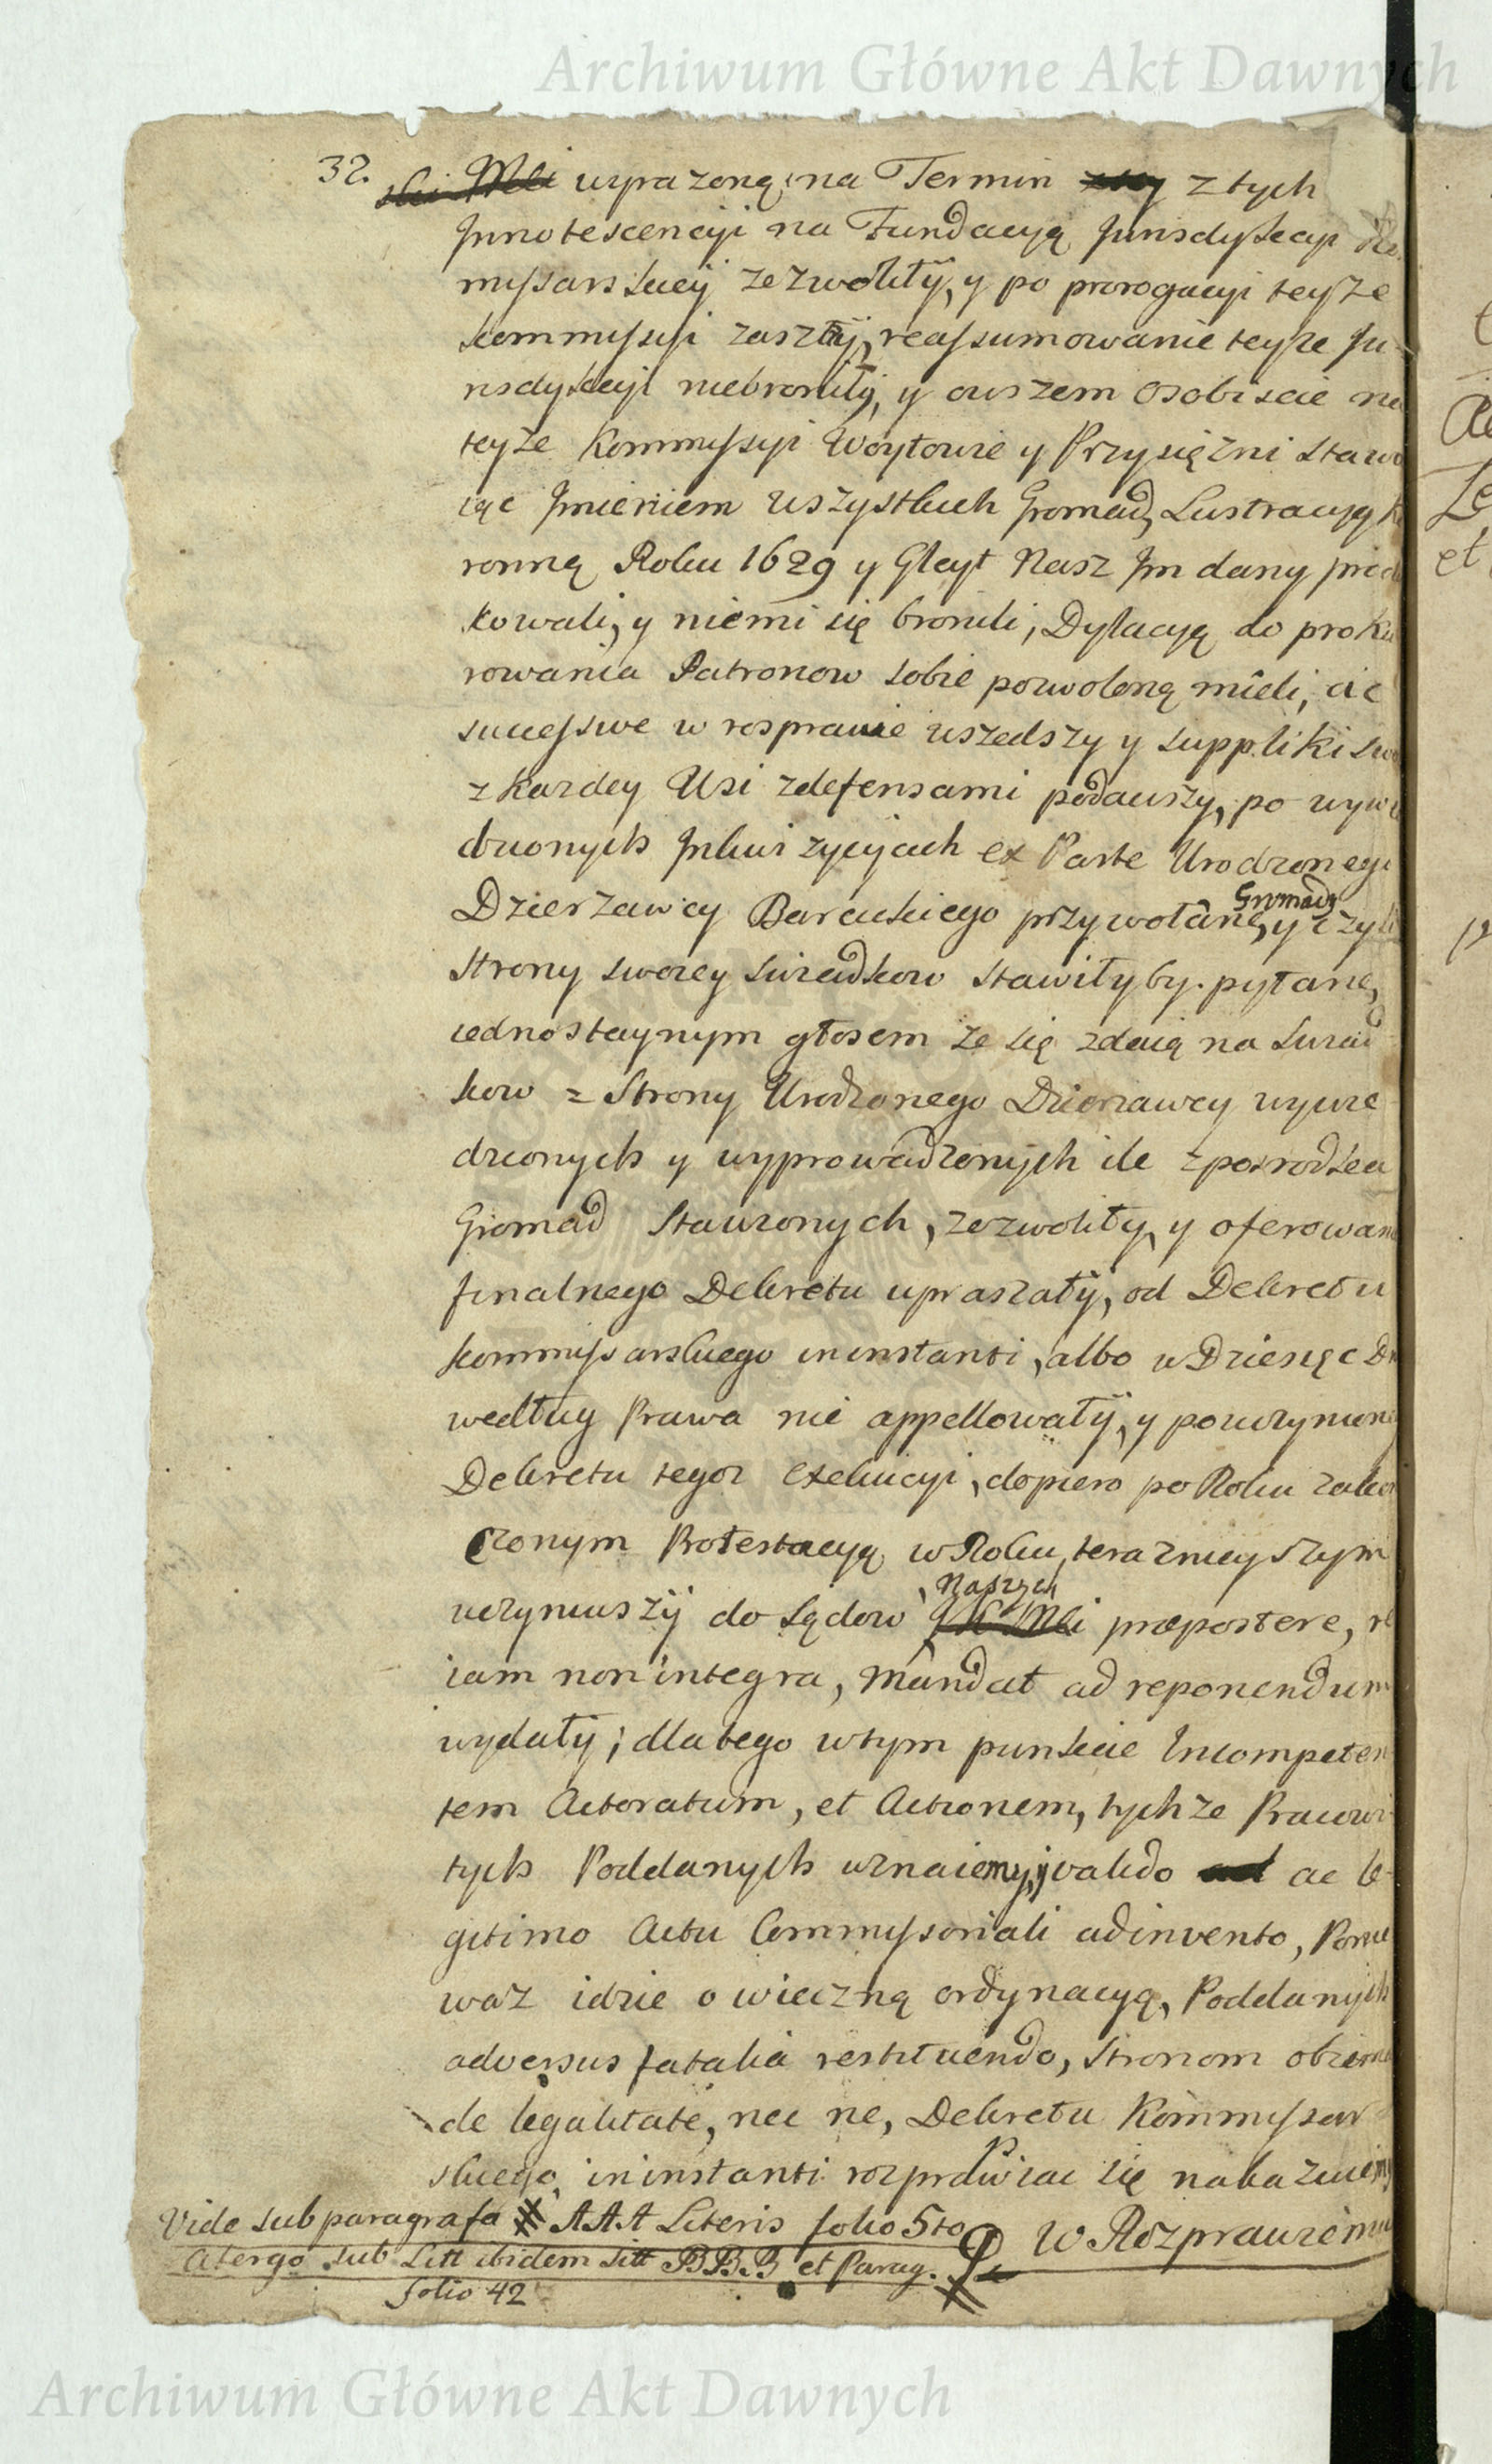 Archiwum Główne Akt Dawnych
32.
wyrazoną na Termin z tych
Innotescencyi na Fundacyą Jurisdykcyi Ko
missarskiey zezwoliły, y po prorogacyi teyże
kommissyi zaszłey, reassumowanie teyże Ju
risdykcyi niebroniły, y owszem osobiscie na
teyże Kommissyi Woytowie y Przysiężni stawa
iąc Jmieniem wszystkich Gromad, Lustracyą
ronną Roku 1629 y Gleyt Nasz Jm dany prod
kowali, y niemi się bronili, Dylacyą do proku
rowania Patronow sobie pozwoloną mieli, ac
successive w rosprawie wszedszy y suppliki swo
z kazdey Wsi z defensami podawszy, po wywie
dzionych Inkwizycyiach ex Parte Urodzonego
Dzierzawcy Barcickiego przywołane, Gromady y iezyli
strony swoiey swiadkow stawiłyby. pytane,
iednostaynym głosem ze się zdaią na swiad
kow z strony Urodzonego Dzierzawcy wywie
dzionych y wyprowadzonych ile z posrodka
Gromad stawionych, zezwoliły, y oferowane
finalnego Dekretu upraszały, od Dekretu
kommissarskiego in instanti, albo w Dziesięc Dn
według Prawa nie appellowały, y po uczynione
Dekretu tegoz exekucyi, dopiero po Roku zako
czonym Protestacyą w Roku teraznieyszym
uczyniwszy do sądow Naszych præpostere, re
iam non integra, Mandat ad reponendum
wydały; dlatego w tym punkcie Incompeten
tem Actoratum, et Actionem, tychże Pracowi
tych Poddanych uznaiemy, y valido ac le
gitimo Actu Commissoriali adinvento, Ponie
waz idzie o wieczną ordynacyą, Poddanych
adversus fatalia restituendo, stronom obiema
de legalitate, nec ne, Dekretu Kommissar
skiego, in instanti rozprawiac się nakazuiemy
w Rozprawie
Vide sub paragrafo # AAA Literis folio 5to
Atergo sub Litt ibidem Litt BBB et Parag.
folio 42
Archiwum Główne Akt Dawnych